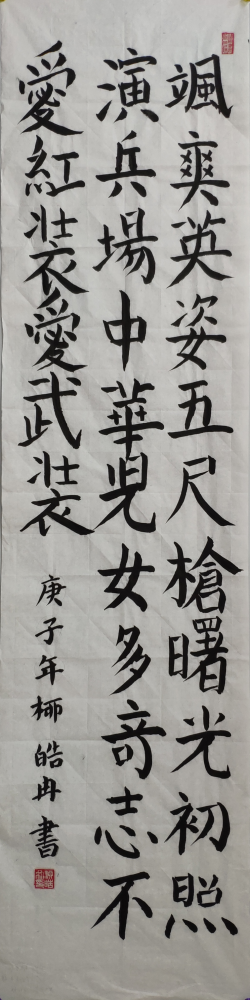 颯爽英姿五尺槍曙光初照
演兵場中華児女多奇志不
愛紅裝愛武裝
庚子年柳皓冉書